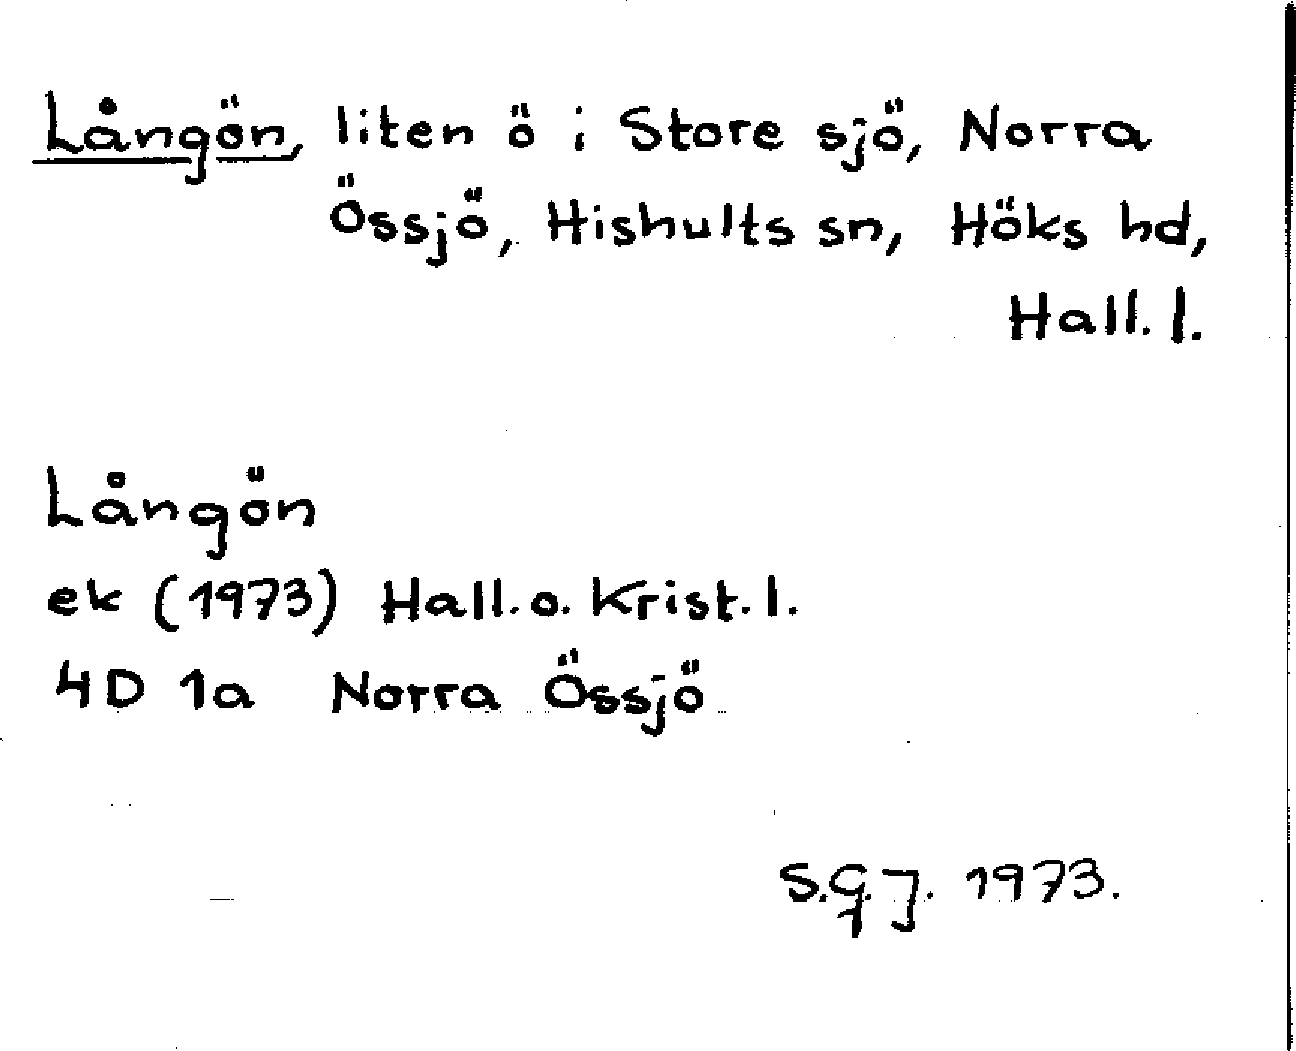 Långön, liten ö i Store sjö, Norra
Össjö, Hishults sn, Höks hd,
Hall. l.
Långön
ek (1973) Hall. o. Krist. l.
4D 1a Norra Össjö
S.G.J. 1973.